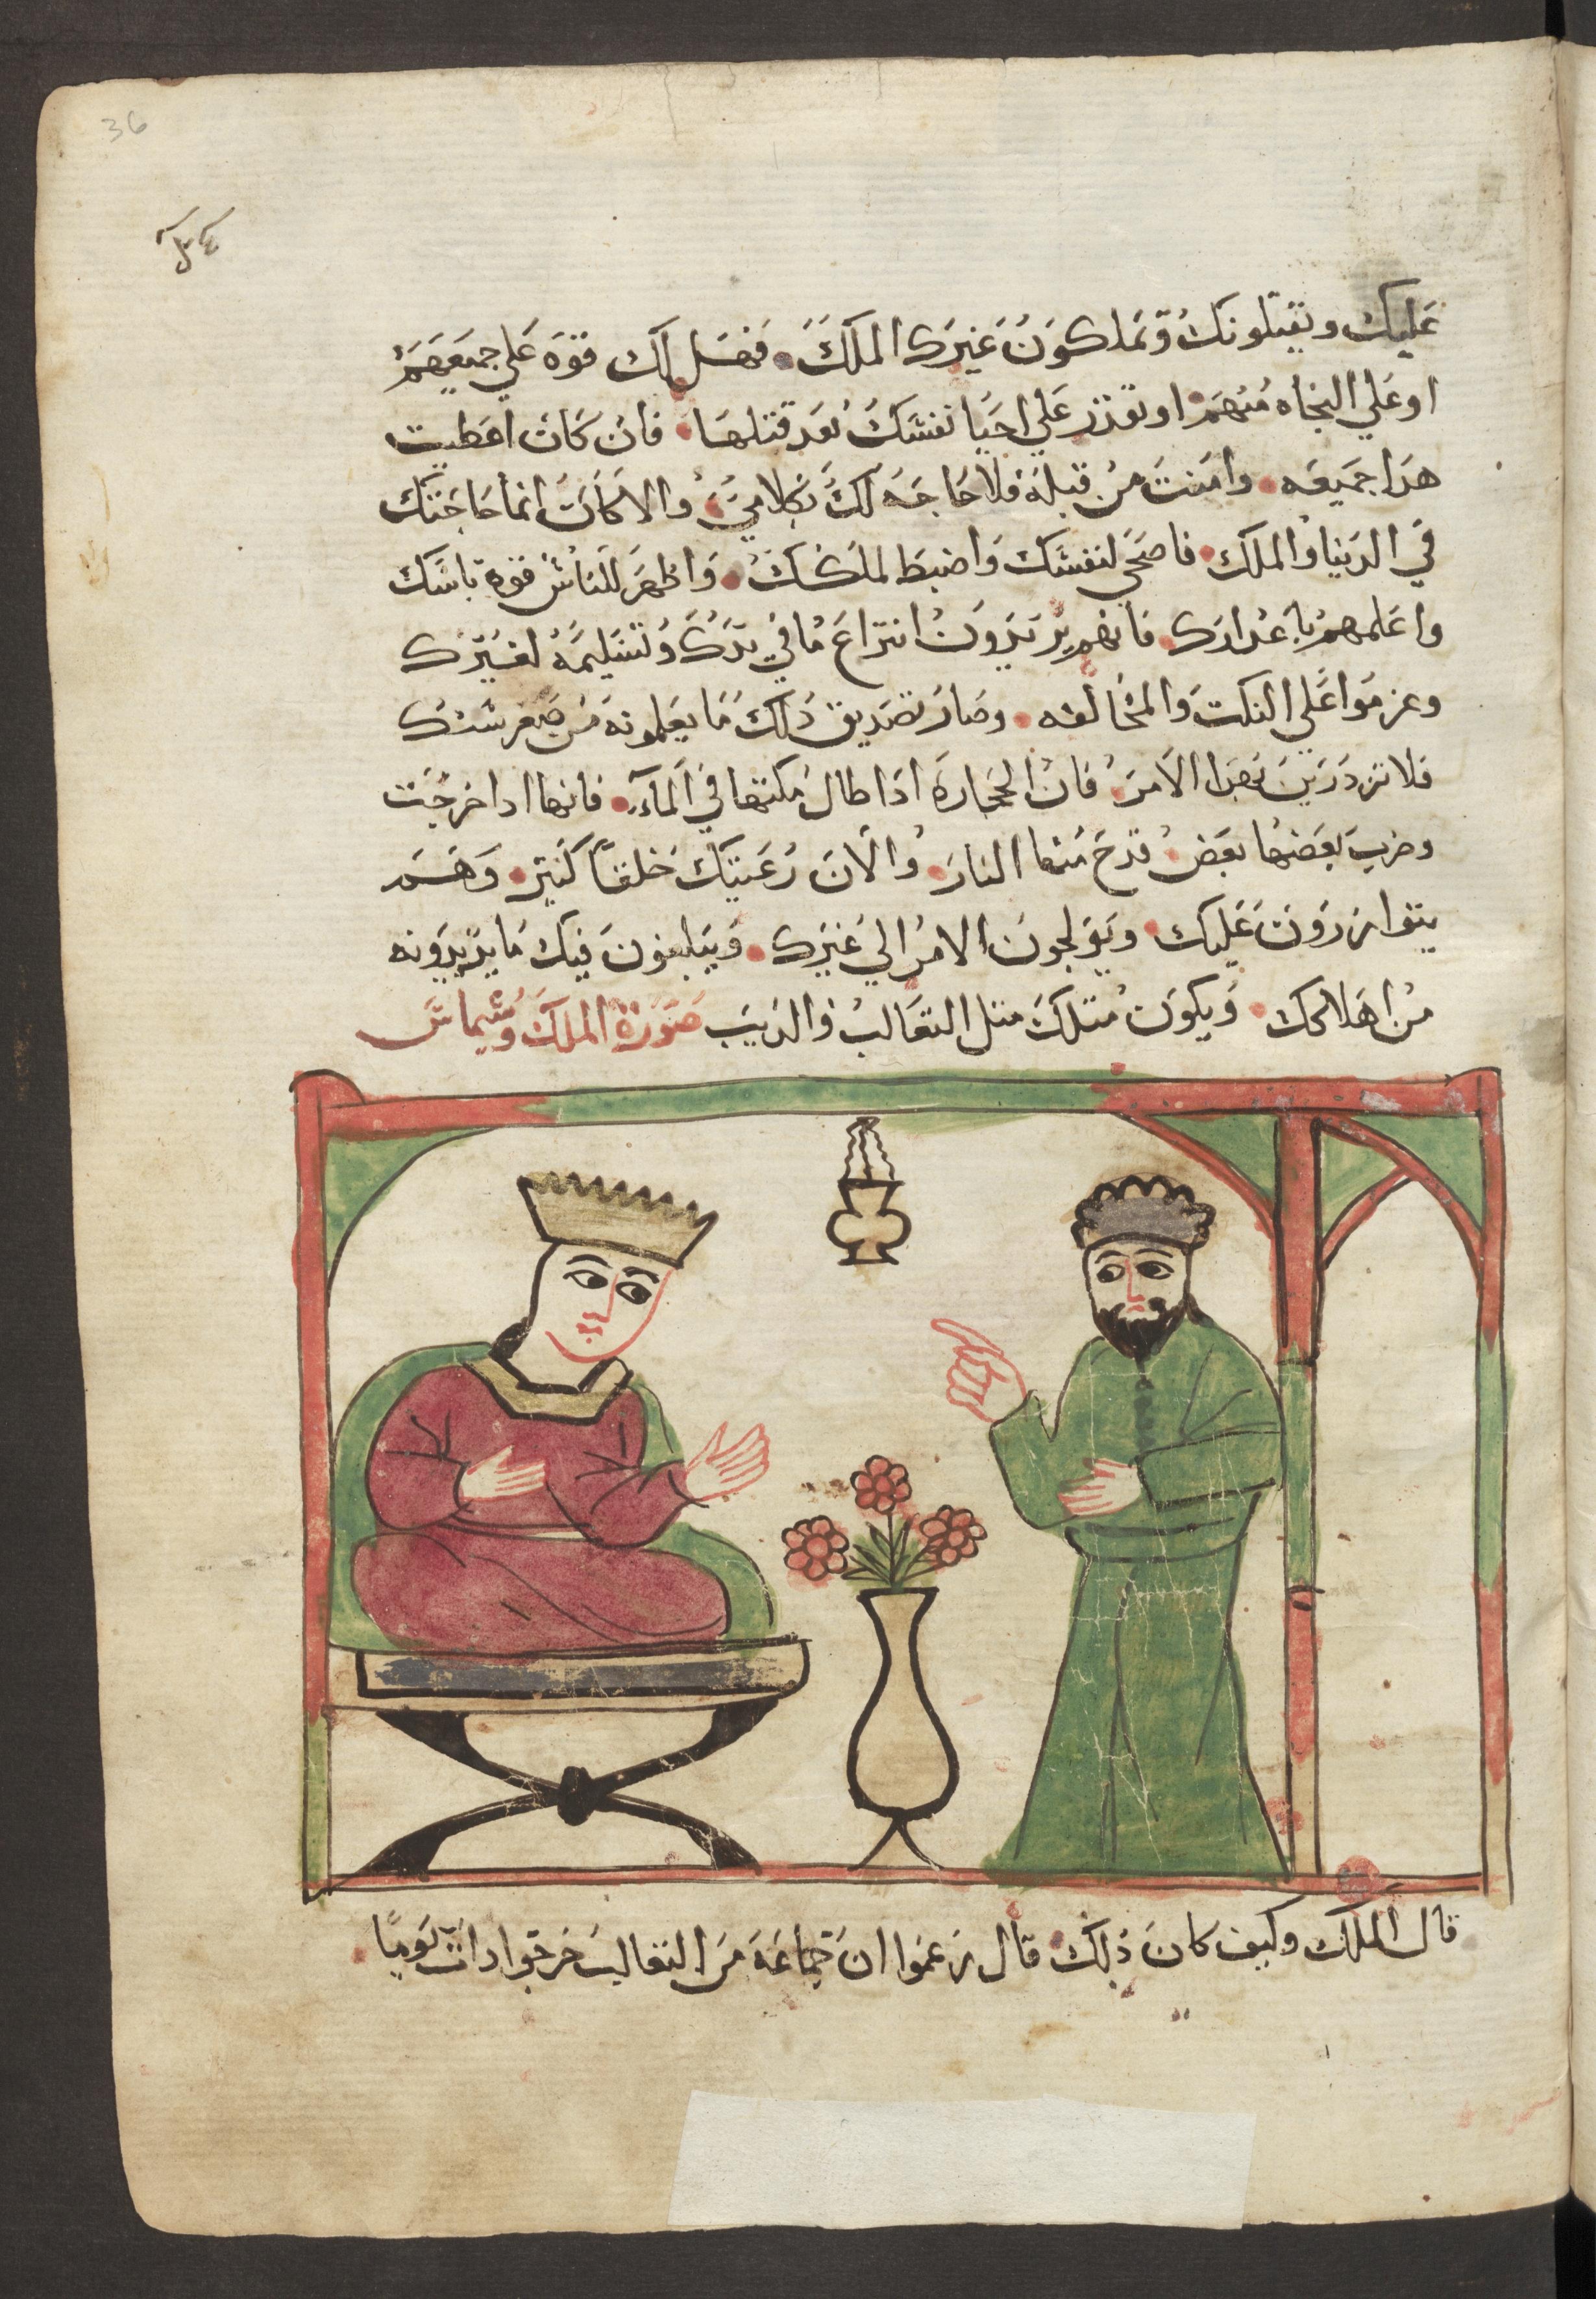 36
عليك ويقتلونك ويملكون غيرك الملك. فهل لك قوة علي جميعهم
او علي النجاه منهم. او تقدر علي احيا نفسك بعد قتلها. فان كان اعطيت
هدا جميعه. وامنت من قبله فلا حاجه لك بكلامي. والا كانت انما حاجتك
في الدنيا والملك. فاصحي لنفسك واضبط لملكك. واظهر للناس قوة باسك
واعلمهم باعدارك. فانهم يريدون انتزاع ما في يدك وتسليمه لغيرك
وعزموا علي النكت والمخالفه. وصار تصديق دلك ما يعلمونه من صغر سنك
فلا تزدرين بهدا الامر. فان الحجارة ادا طال مكتها في المآء. فانها ادا خرجت
وضرب بعضها بعض قدح منها النار. والان رعيتك خلقاً كتير. وهم
يتوازرون عليك. ويولجون الامر الي غيرك. ويبلغون فيك ما يريدونه
من اهلاكك. ويكون متلك متل التعالب والديب صورة الملك وشيماس
قال الملك وكيف كان دلك. قال زعموا ان جماعة من التعالب خرجوا دات يوماً.